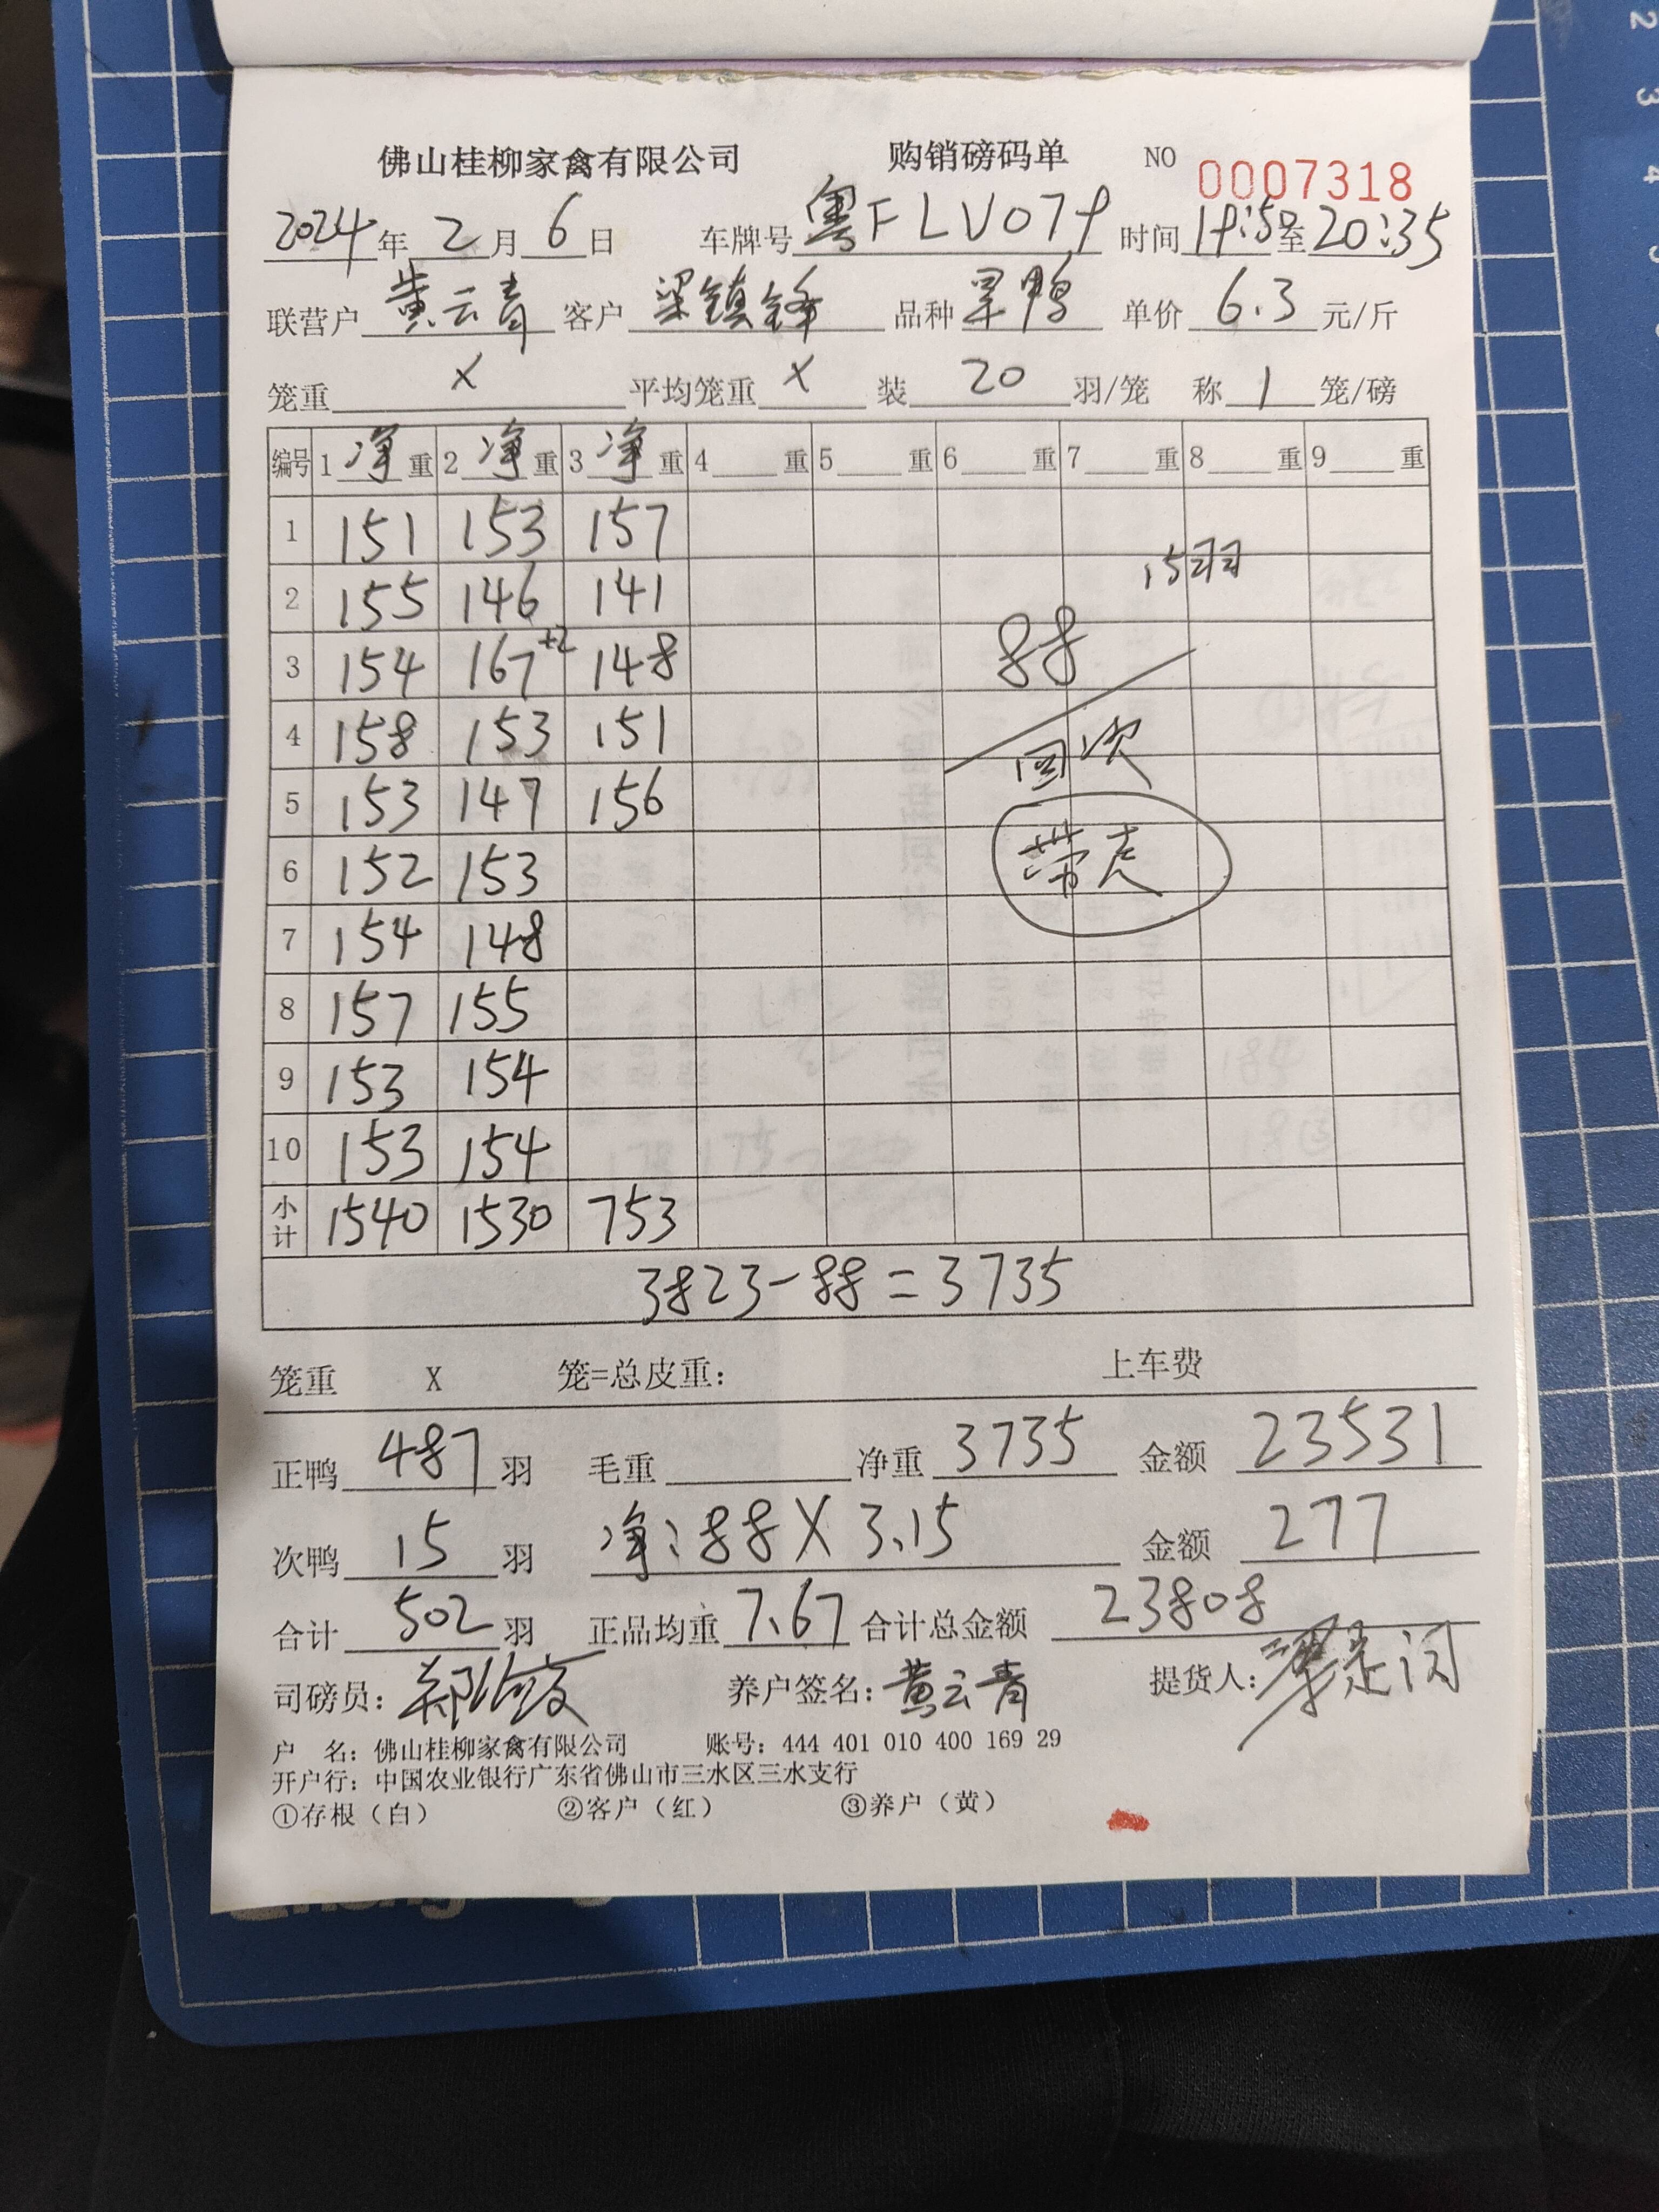 佛山桂柳家禽有限公司 购销磅码单 NO 0007318
2024年2月6日 车牌号粤FLV079 时间19:58至20:35
联营户 黄云青 客户 梁镇锋 品种 旱鸭 单价 6.3 元/斤
笼重 X 平均笼重 X 装 20 羽/笼 称 1 笼/磅
编号 1净重 2净重 3净重 4 重 5 重 6 重 7 重 8 重 9 重
1 151 153 157
15羽
2 155 146 141
3 154 167+2 148 88
4 158 153 151 回次
5 153 147 156
6 152 153 带走
7 154 148
8 157 155
9 153 154
10 153 154
小计 1540 1530 753
3823-88=3735
笼重 X 笼=总皮重: 上车费
正鸭 487 羽 毛重 净重 3735 金额 23531
次鸭 15 羽 净:88X3.15 金额 277
合计 502 羽 正品均重 7.67 合计总金额 23808
司磅员: 养户签名: 黄云青 提货人:
户 名: 佛山桂柳家禽有限公司 账号: 444 401 010 400 169 29
开户行: 中国农业银行广东省佛山市三水区三水支行
①存根（白） ②客户（红） ③养户（黄）